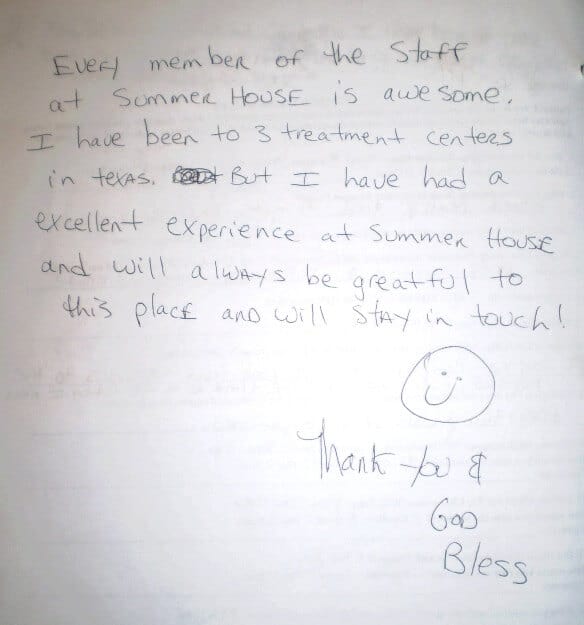 Every member of the Staff
at Summer House is awesome.
I have been to 3 treatment centers
in texas. But I have had a
excellent experience at Summer House
and will always be greatful to
this place and will stay in touch!
Thank you &
God
Bless